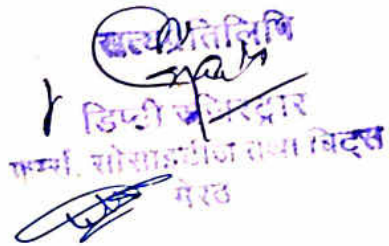 सत्यप्रतिलिपि
डिप्टी रजिस्ट्रार
फर्म्स, सोसाइटीज तथा चिट्स
मेरठ